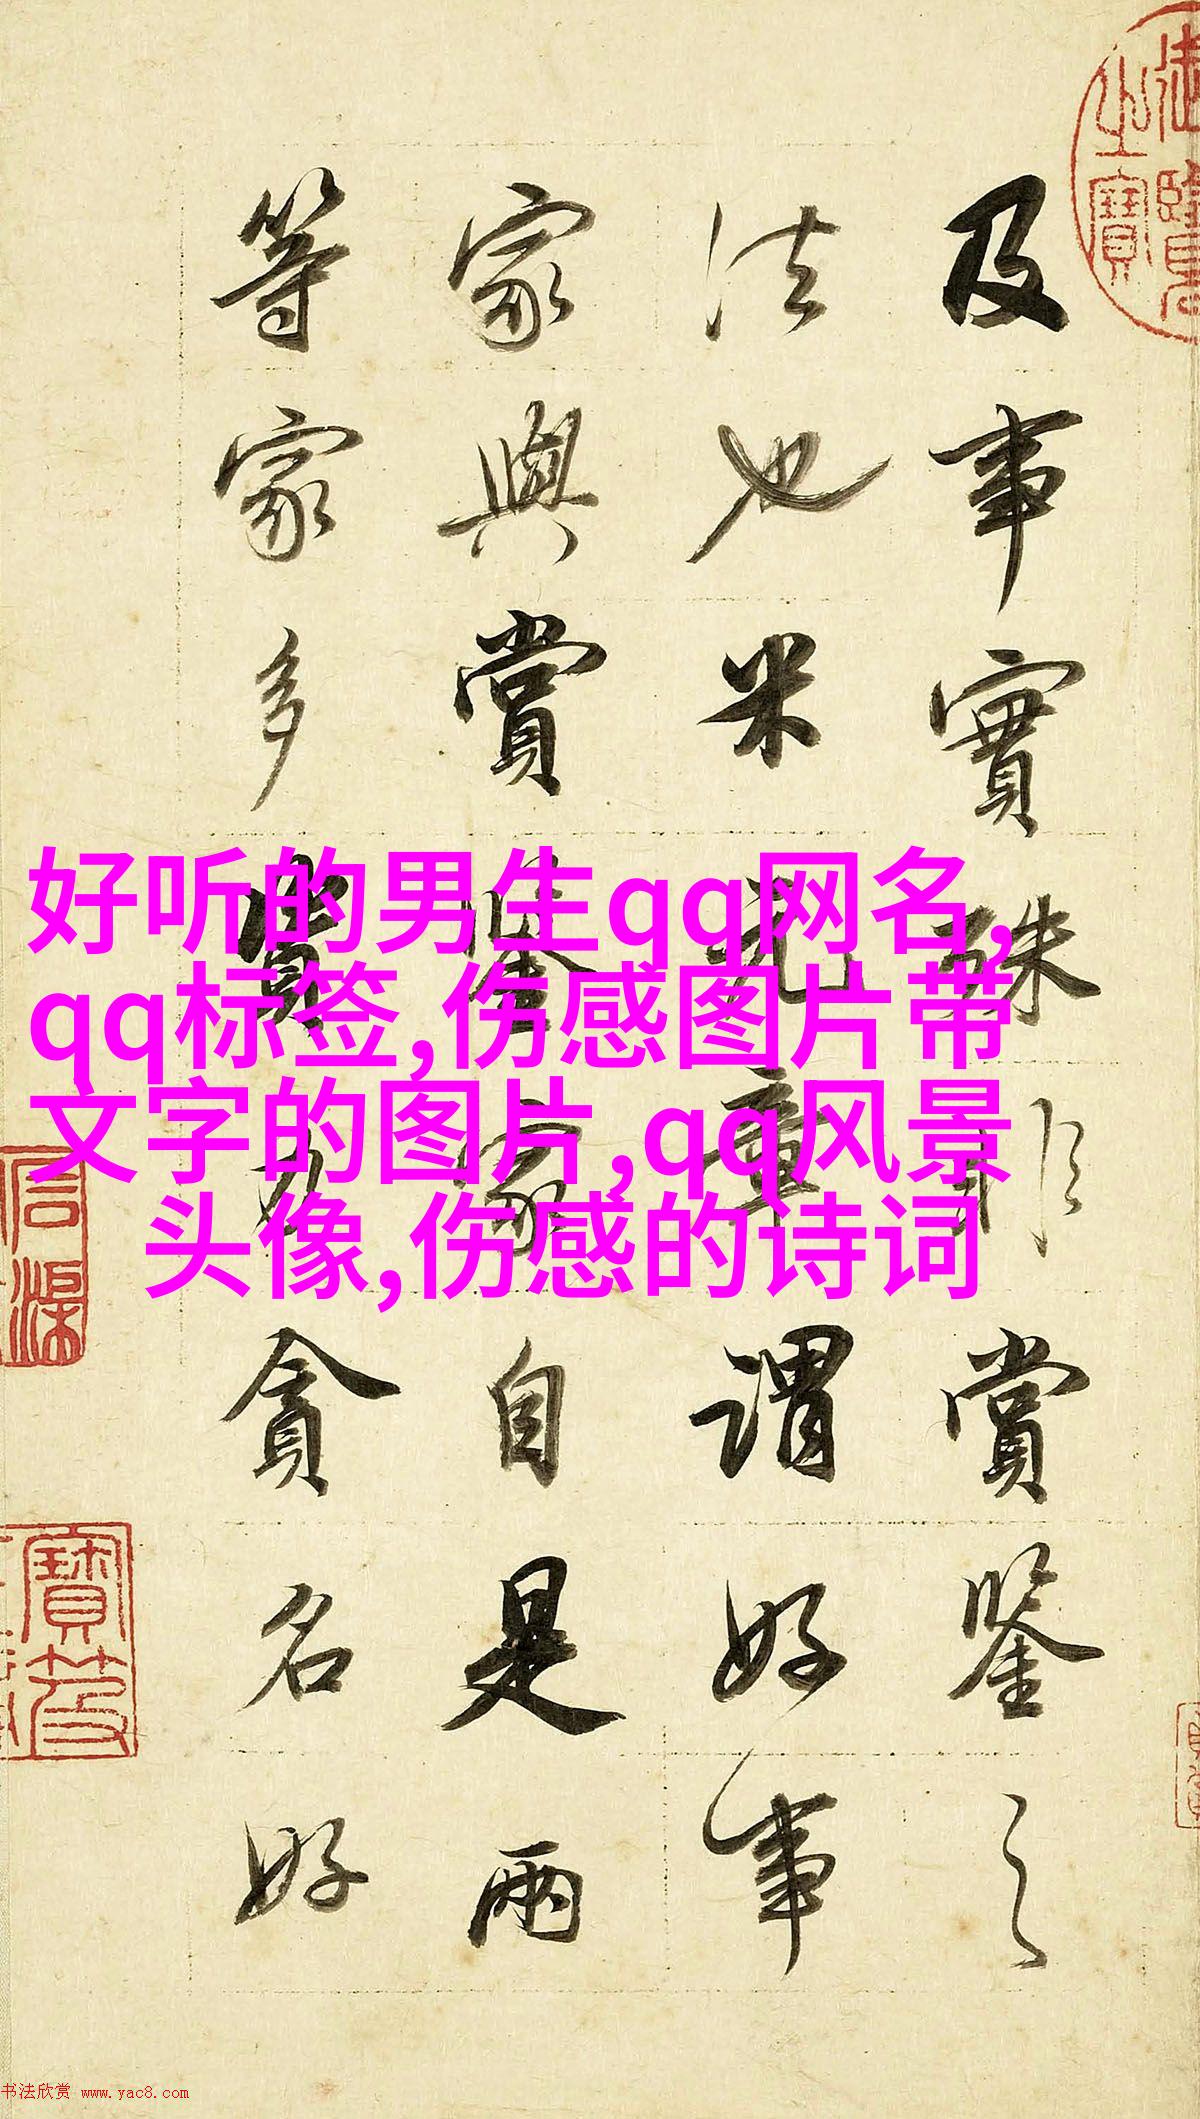 及事實殊非賞鑒之
法也米元章謂好事
家與賞鑒家自是兩
等家多資力貪名好
好听的男生qq网名,
qq标签,伤感图片带
文字的图片,qq风景
头像,伤感的诗词
御覽之寶
寶笈
书法欣赏 www.yac8.com